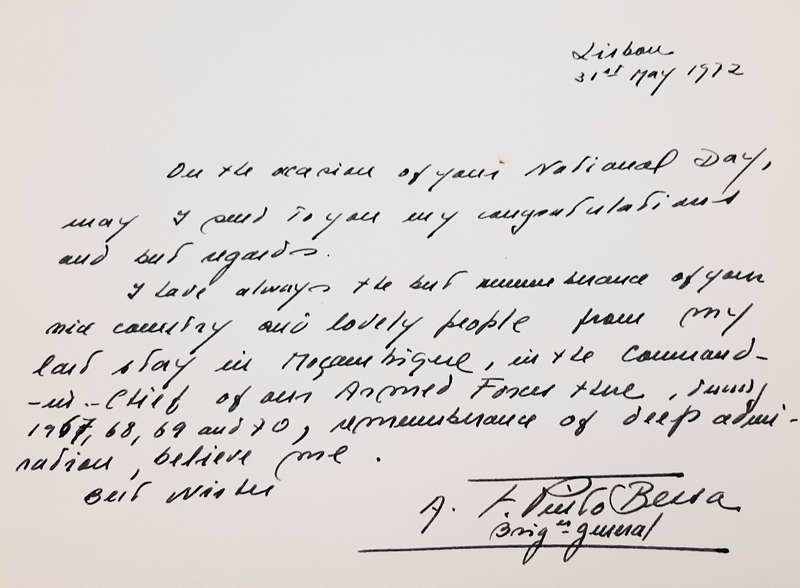 Lisbon
31st May 1972
On the ocasion of your National Day,
may I send to you my congratulations
and best regards.
I have always the best remembrance of your
nice country and lovely people from my
last stay in Moçambique, in the Command-
-in-Chief of our Armed Forces there, during
1967, 68, 69 and 70, remembrance of deep admi-
ration, believe me.
Best Wishes
A. F. Pinto Bessa
Briger-general